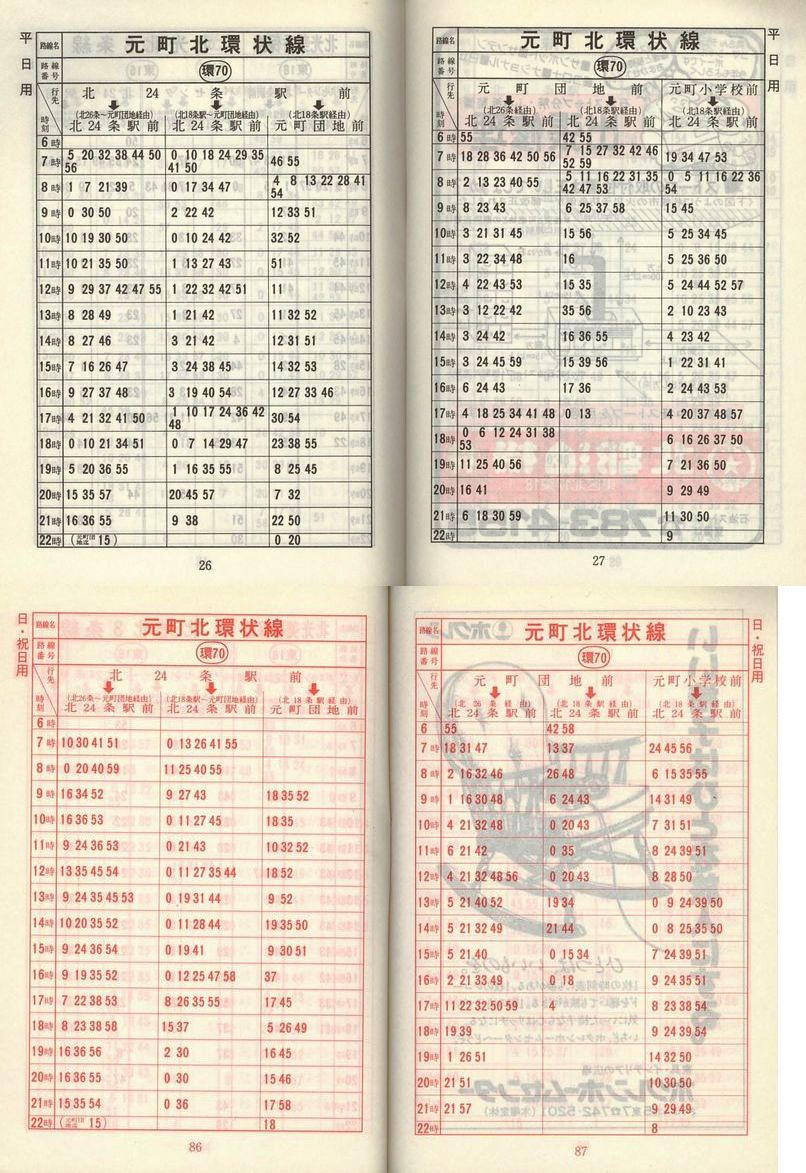 平日用
路線名 元町北環状線
路線番号 環70
行先 北24条駅前
時刻 (北26条〜元町団地経由) (北18条駅〜元町団地経由) (北18条駅経由)
北24条駅前 北24条駅前 元町団地前
6時
7時 5 20 32 38 44 50 56 0 10 18 24 29 35 41 50 46 55
8時 1 7 21 39 0 17 34 47 4 8 13 22 28 41 54
9時 0 30 50 2 22 42 12 33 51
10時 10 19 30 50 0 10 24 42 32 52
11時 10 21 35 50 1 13 27 43 51
12時 9 29 37 42 47 55 1 22 32 42 51 11
13時 8 28 49 1 21 42 11 32 52
14時 8 27 46 3 21 42 12 31 51
15時 7 16 26 47 3 24 38 45 14 32 53
16時 9 27 37 48 3 19 40 54 12 27 33 46
17時 4 21 32 41 50 1 10 17 24 36 42 48 30 54
18時 0 10 21 34 51 0 7 14 29 47 23 38 55
19時 5 20 36 55 1 16 35 55 8 25 45
20時 15 35 57 20 45 57 7 32
21時 16 36 55 9 38 22 50
22時 (元町団地迄 15) 0 20
26
平日用
路線名 元町北環状線
路線番号 環70
行先 元町団地前 元町小学校前
時刻 (北26条経由) (北18条駅経由) (北18条駅経由)
北24条駅前 北24条駅前 北24条駅前
6時 55 42 55
7時 18 28 36 42 50 56 7 15 27 32 42 46 52 59 19 34 47 53
8時 2 13 23 40 55 5 11 16 22 31 35 42 47 53 0 5 11 16 22 36 54
9時 8 23 43 6 25 37 58 15 45
10時 3 21 31 45 15 56 5 25 34 45
11時 3 22 34 48 16 5 25 36 50
12時 4 22 43 53 15 35 5 24 44 52 57
13時 3 12 22 42 35 56 2 10 23 43
14時 3 24 42 16 36 55 4 23 42
15時 3 24 45 59 15 39 56 1 22 31 41
16時 6 24 43 17 36 2 24 43 53
17時 4 18 25 34 41 48 0 13 4 20 37 48 57
18時 0 6 12 24 31 38 53 6 16 26 37 50
19時 11 25 40 56 7 21 36 50
20時 16 41 9 29 49
21時 6 18 30 59 11 30 50
22時 9
27
日・祝日用
路線名 元町北環状線
路線番号 環70
行先 北24条駅前
時刻 (北26条〜元町団地経由) (北18条駅〜元町団地経由) (北18条駅経由)
北24条駅前 北24条駅前 元町団地前
6時
7時 10 30 41 51 0 13 26 41 55
8時 0 20 40 59 11 25 40 55
9時 16 34 52 9 27 43 18 35 52
10時 16 36 53 0 11 27 45 18 35
11時 9 24 36 53 0 21 43 10 32 52
12時 13 35 45 54 0 11 27 35 44 18 52
13時 9 24 35 45 53 0 19 31 44 9 52
14時 10 20 35 52 0 11 28 44 19 35 50
15時 9 24 36 54 0 19 41 9 30 51
16時 9 19 35 52 0 12 25 47 58 37
17時 7 22 38 53 8 26 35 55 17 45
18時 8 23 38 58 15 37 5 26 49
19時 16 36 56 2 30 16 45
20時 16 36 55 0 30 15 46
21時 15 35 54 0 36 17 58
22時 (元町団地迄 15) 18
86
日・祝日用
路線名 元町北環状線
路線番号 環70
行先 元町団地前 元町小学校前
時刻 (北26条経由) (北18条駅経由) (北18条駅経由)
北24条駅前 北24条駅前 北24条駅前
6 55 42 58
7時 18 31 47 13 37 24 45 56
8時 2 16 32 46 26 48 6 15 35 55
9時 1 16 30 48 6 24 43 14 31 49
10時 4 21 32 48 0 20 43 7 31 51
11時 6 21 42 0 35 8 24 39 51
12時 4 21 32 48 56 0 20 43 8 28 50
13時 5 21 40 52 19 34 0 9 24 39 50
14時 5 21 32 49 21 44 0 8 25 35 50
15時 5 21 40 0 15 34 7 24 39 51
16時 2 21 33 49 0 18 9 24 35 51
17時 11 22 32 50 59 4 8 23 38 54
18時 19 39 9 24 39 54
19時 1 26 51 14 32 50
20時 21 51 10 30 50
21時 21 57 9 29 49
22時 8
87